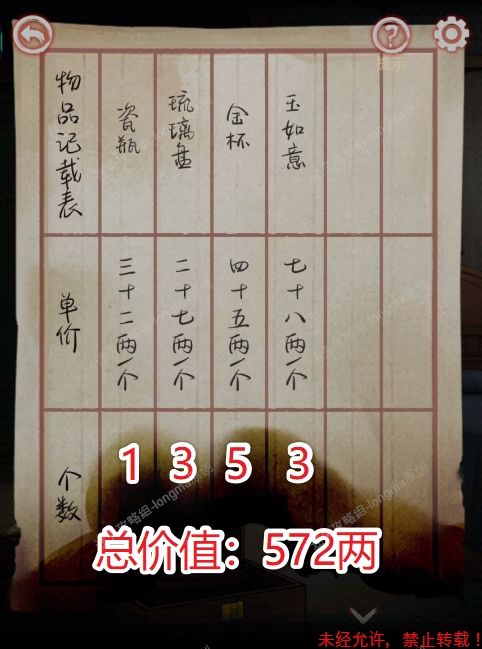 提示
物品记载表
瓷瓶
琉璃盏
金杯
玉如意
单价
三十二两一个
二十七两一个
四十五两一个
七十八两一个
个数
1 3 5 3
总价值：572两
未经允许，禁止转载！